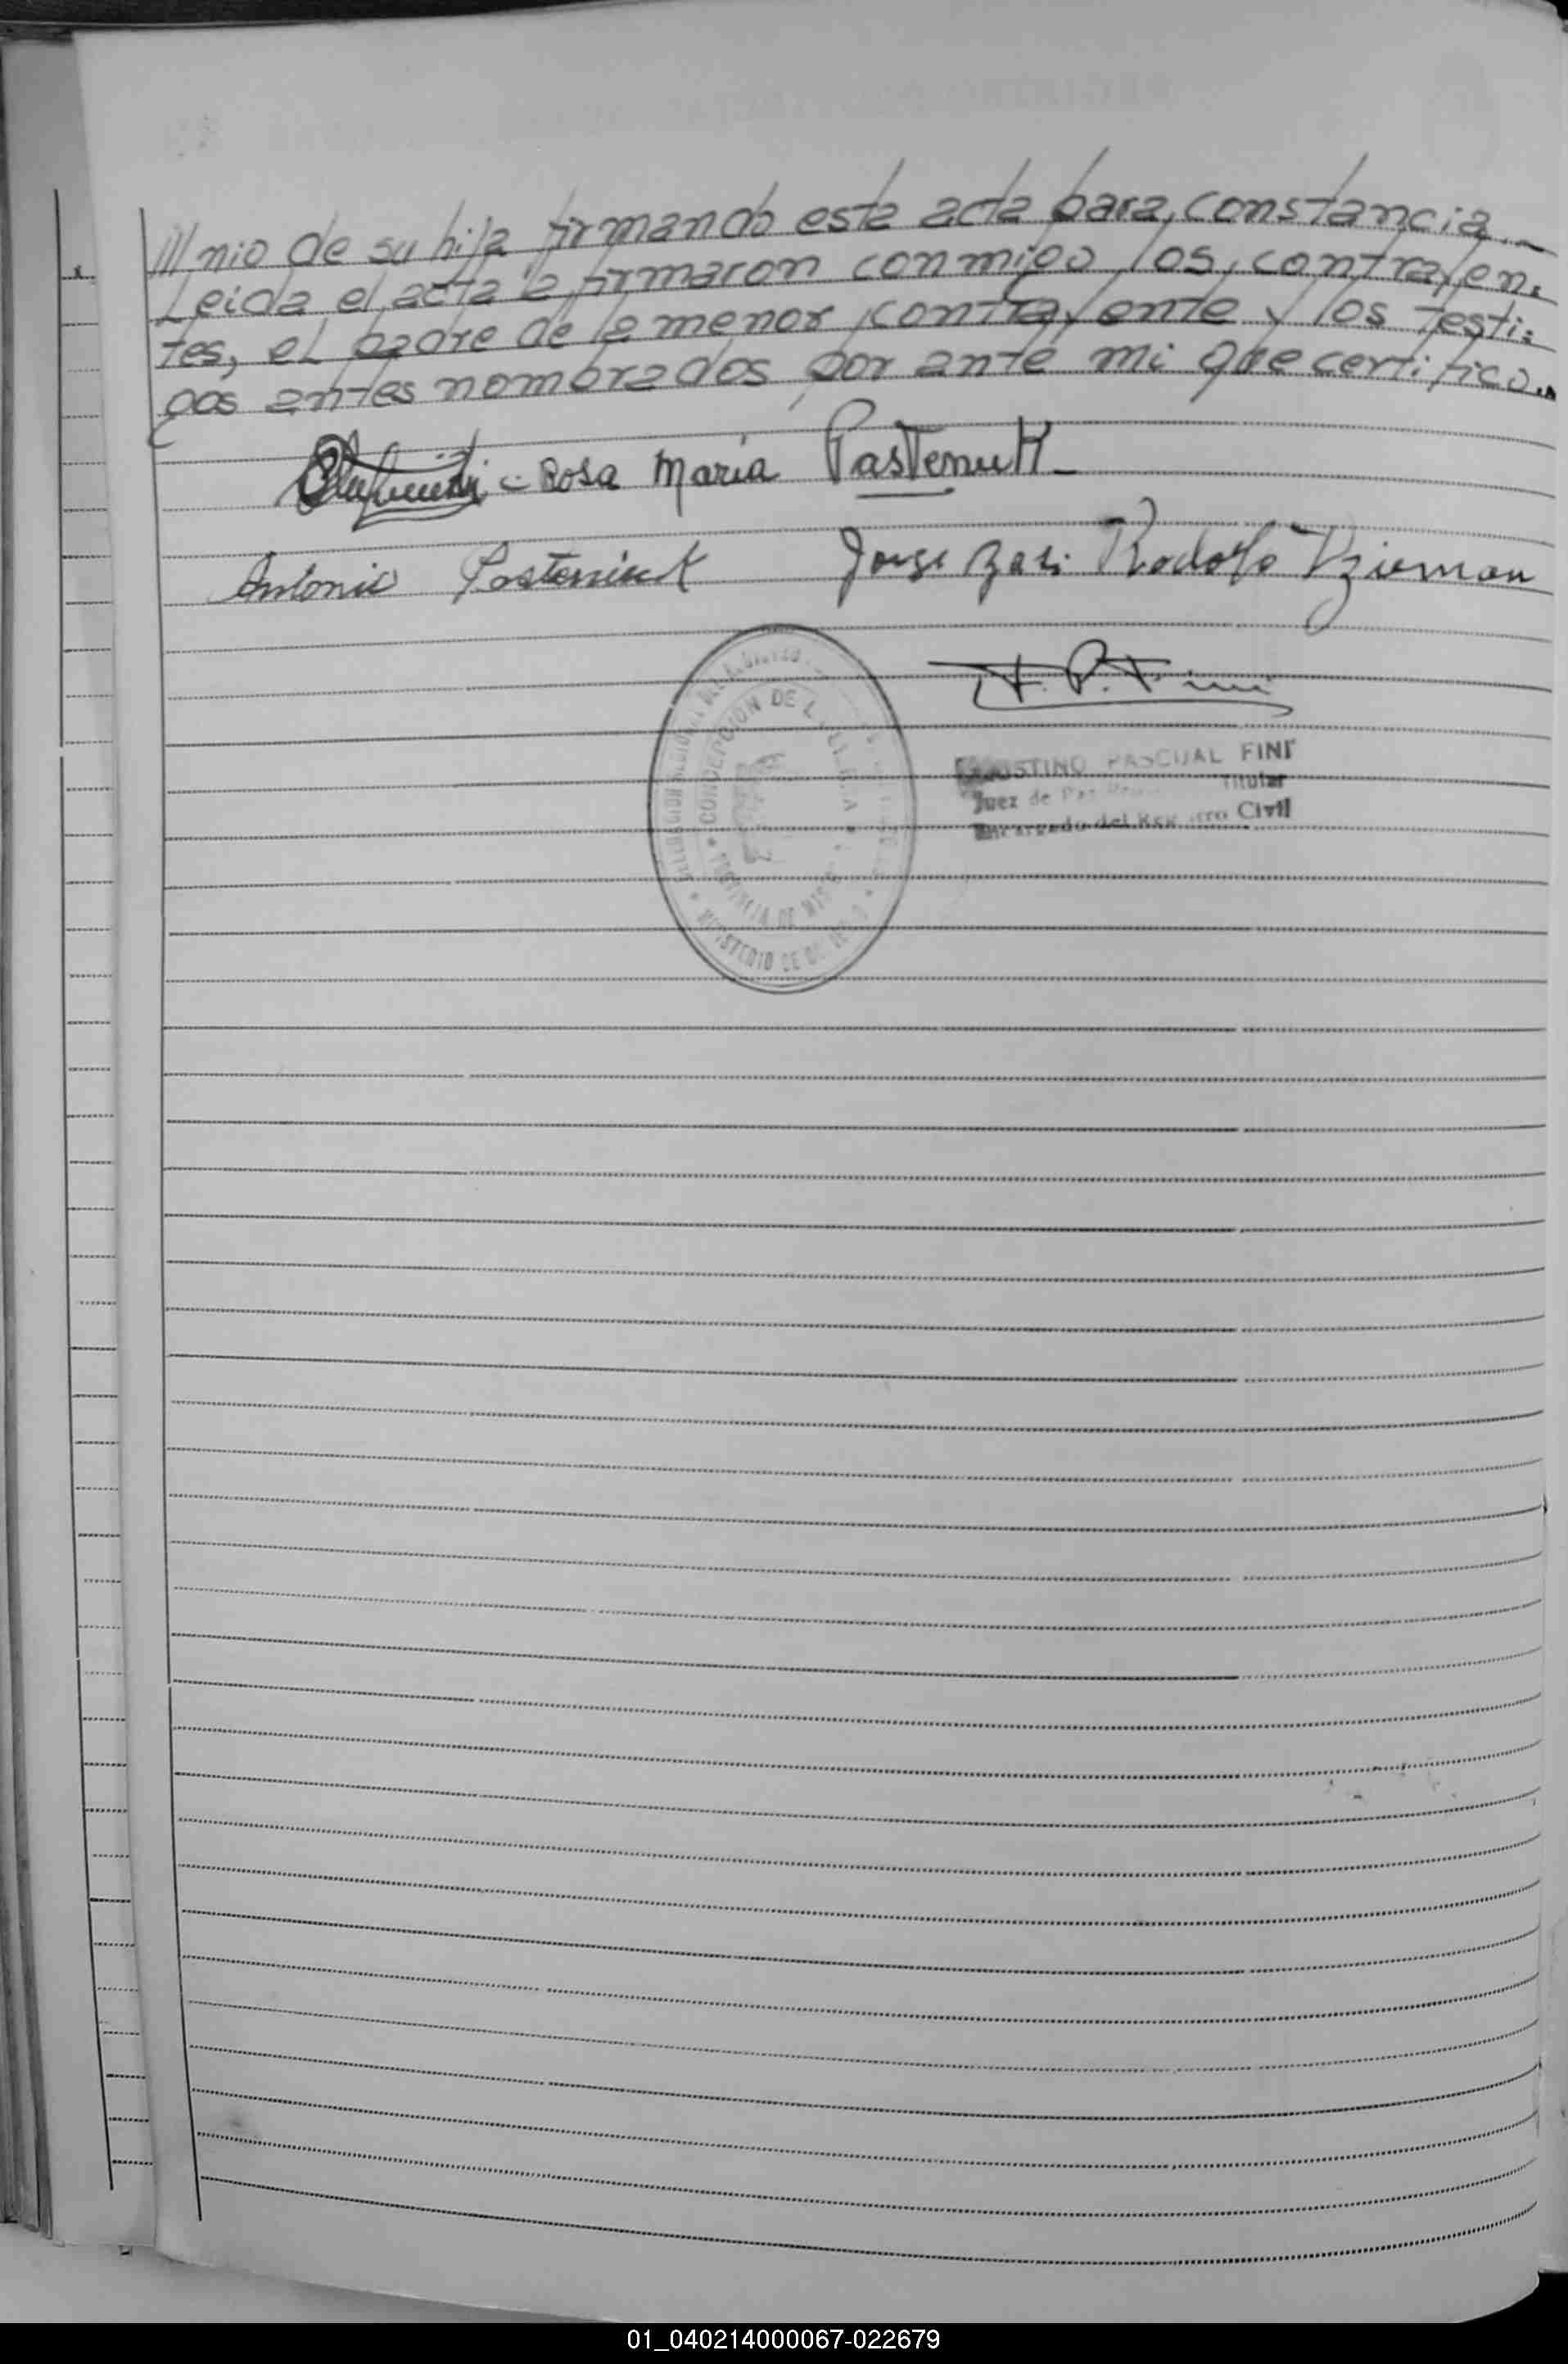 ///nio de su hija, firmando este acta para constancia.-
Leída el acta la firmaron conmigo los contrayen=
tes, el padre de la menor contrayente y los testi=
gos antes nombrados por ante mi que certifico..
- Rosa Maria Pastenuk-
Antonio Pasteniuk Jorge Rodolfo
A. P. Fini
CONCEPCION DE L
MINISTERIO DE
PROVINCIA DE MIS
PASCUAL FINI
Juez de Paz Titular
Encargado del Registro Civil
01_040214000067-022679